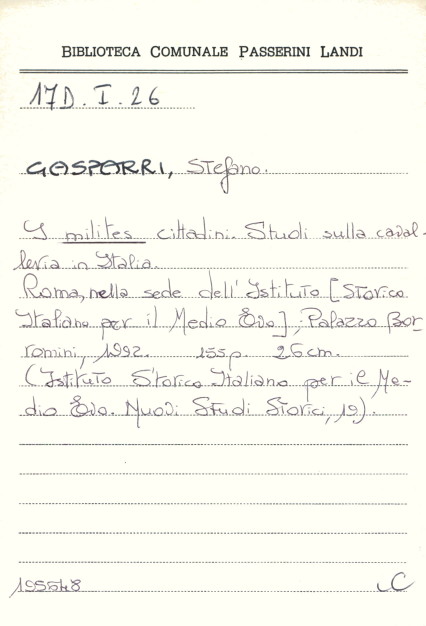 BIBLIOTECA COMUNALE PASSERINI LANDI
17D. I. 26
GASPARRI, Stefano.
I milites cittadini. Studi sulla caval-
leria in Italia.
Roma, nella sede dell'Istituto [Storico
Italiano per il Medio Evo], Palazzo Bor-
romini, 1992. 155p. 26cm.
(Istituto Storico Italiano per il Me-
dio Evo. Nuovi Studi Storici, 19).
195548
C